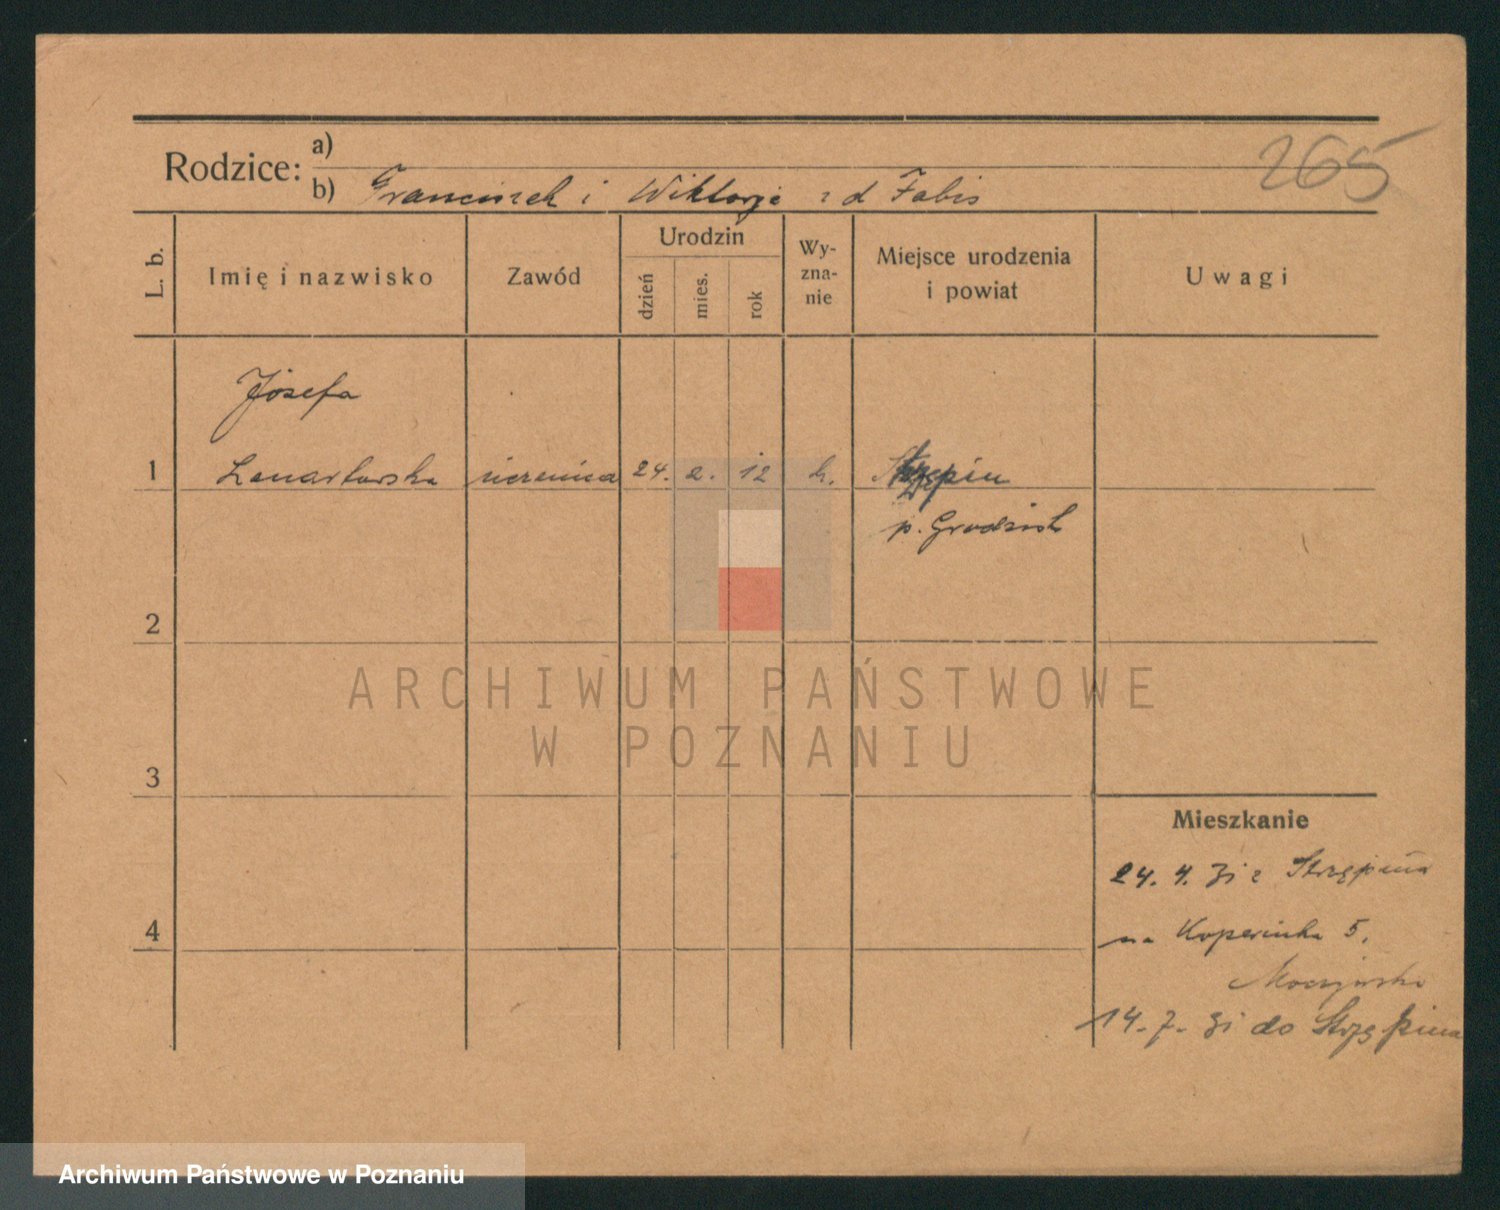 265
Rodzice:
a)
b) Franciszek i Wiktorja z d Fabis
L. b.
Imię i nazwisko
Zawód
Urodzin
dzień
mies.
rok
Wy-
zna-
nie
Miejsce urodzenia
i powiat
Uwagi
Józefa
1 Lenartowska uczenica 24. 2. 12 k. Strzępiń
p. Grodzisk
2
3
4
Mieszkanie
24. 4. 31 z Strzępinia
na Kopernika 5.
14. 7. 31 do Strzępinia
ARCHIWUM PAŃSTWOWE
W POZNANIU
Archiwum Państwowe w Poznaniu